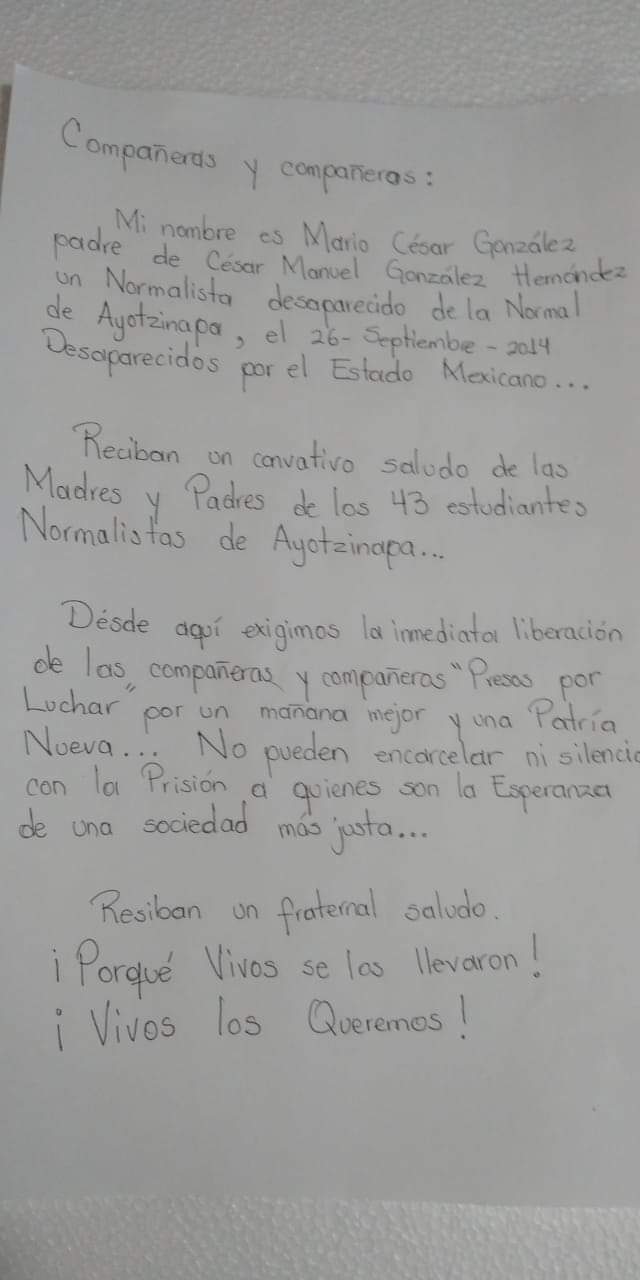 Compañeras y compañeros:
Mi nombre es Mario César González
padre de César Manuel González Hernández
un Normalista desaparecido de la Normal
de Ayotzinapa, el 26-Septiembre-2014
Desaparecidos por el Estado Mexicano...
Reciban un convativo saludo de las
Madres y Padres de los 43 estudiantes
Normalistas de Ayotzinapa...
Désde aquí exigimos la inmediata liberación
de las compañeras y compañeros "Presos por
Luchar" por un mañana mejor y una Patria
Nueva... No pueden encarcelar ni silencia
con la Prisión a quienes son la Esperanza
de una sociedad más justa...
Resiban un fraternal saludo.
¡Porqué Vivos se los llevaron!
¡Vivos los Queremos!